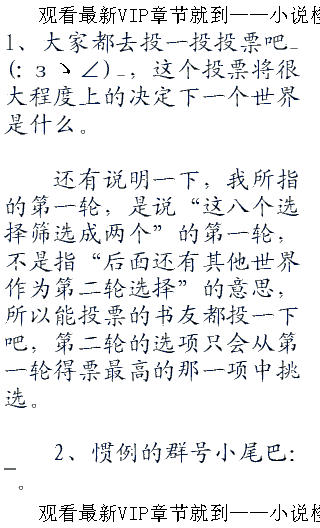 观看最新VIP章节就到——小说
1、大家都去投一投投票吧_
(: з ヽ∠)_，这个投票将很
大程度上的决定下一个世界
是什么。
还有说明一下，我所指
的第一轮，是说“这八个选
择筛选成两个”的第一轮，
不是指“后面还有其他世界
作为第二轮选择”的意思，
所以能投票的书友都投一下
吧，第二轮的选项只会从第
一轮得票最高的那一项中挑
选。
2、惯例的群号小尾巴：
_。
观看最新VIP章节就到——小说